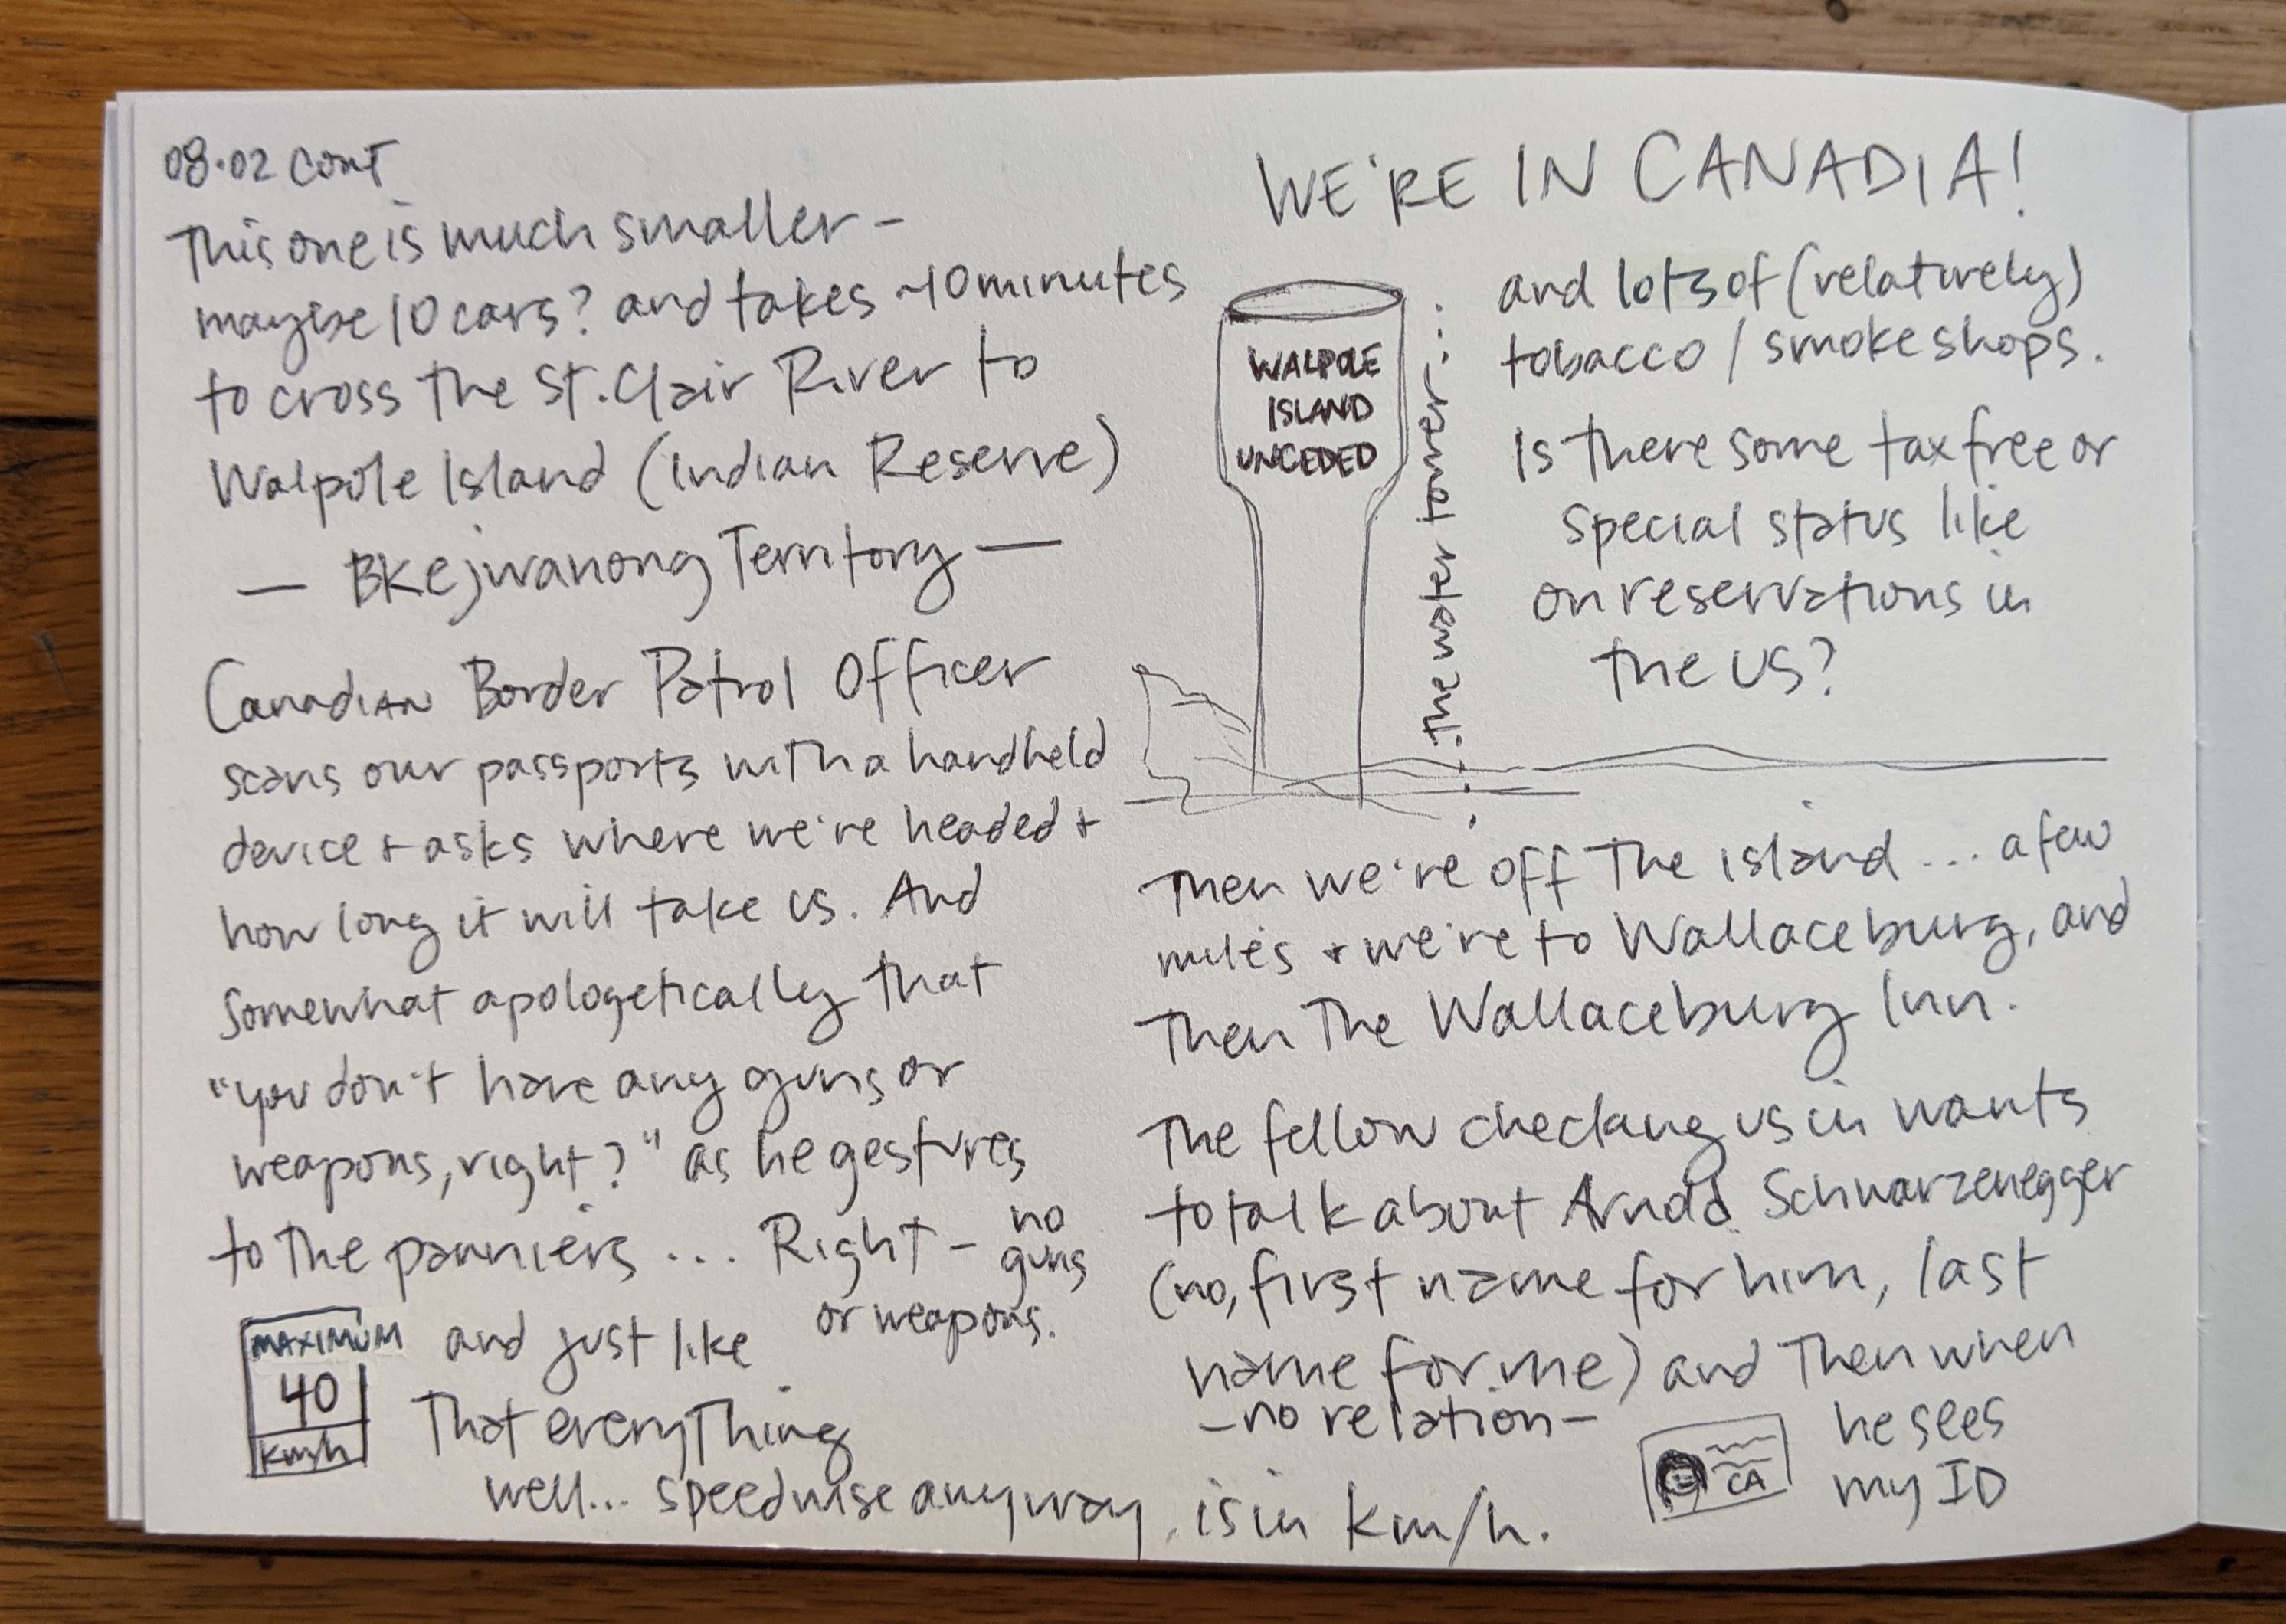 08.02 CONT
This one is much smaller -
maybe 10 cars? and takes ~10 minutes
to cross the St. Clair River to
Walpole Island (Indian Reserve)
— Bkejwanong Territory —
Canadian Border Patrol Officer
scans our passports with a handheld
device + asks where we're headed +
how long it will take us. And
somewhat apologetically that
"you don't have any guns or
weapons, right?" as he gestures
to the panniers ... Right - no
guns
or weapons.
and just like
that everything
well... speedwise anyway, is in km/h.
MAXIMUM
40
km/h
WE'RE IN CANADIA!
WALPOLE
ISLAND
UNCEDED
... the water tower ...
and lots of (relatively)
tobacco / smoke shops.
Is there some tax free or
special status like
on reservations in
the US?
Then we're off the island ... a few
miles + we're to Wallaceburg, and
then the Wallaceburg Inn.
The fellow checking us in wants
to talk about Arnold Schwarzenegger
(no, first name for him, last
name for me) and then when
- no relation -
he sees
my ID
CA